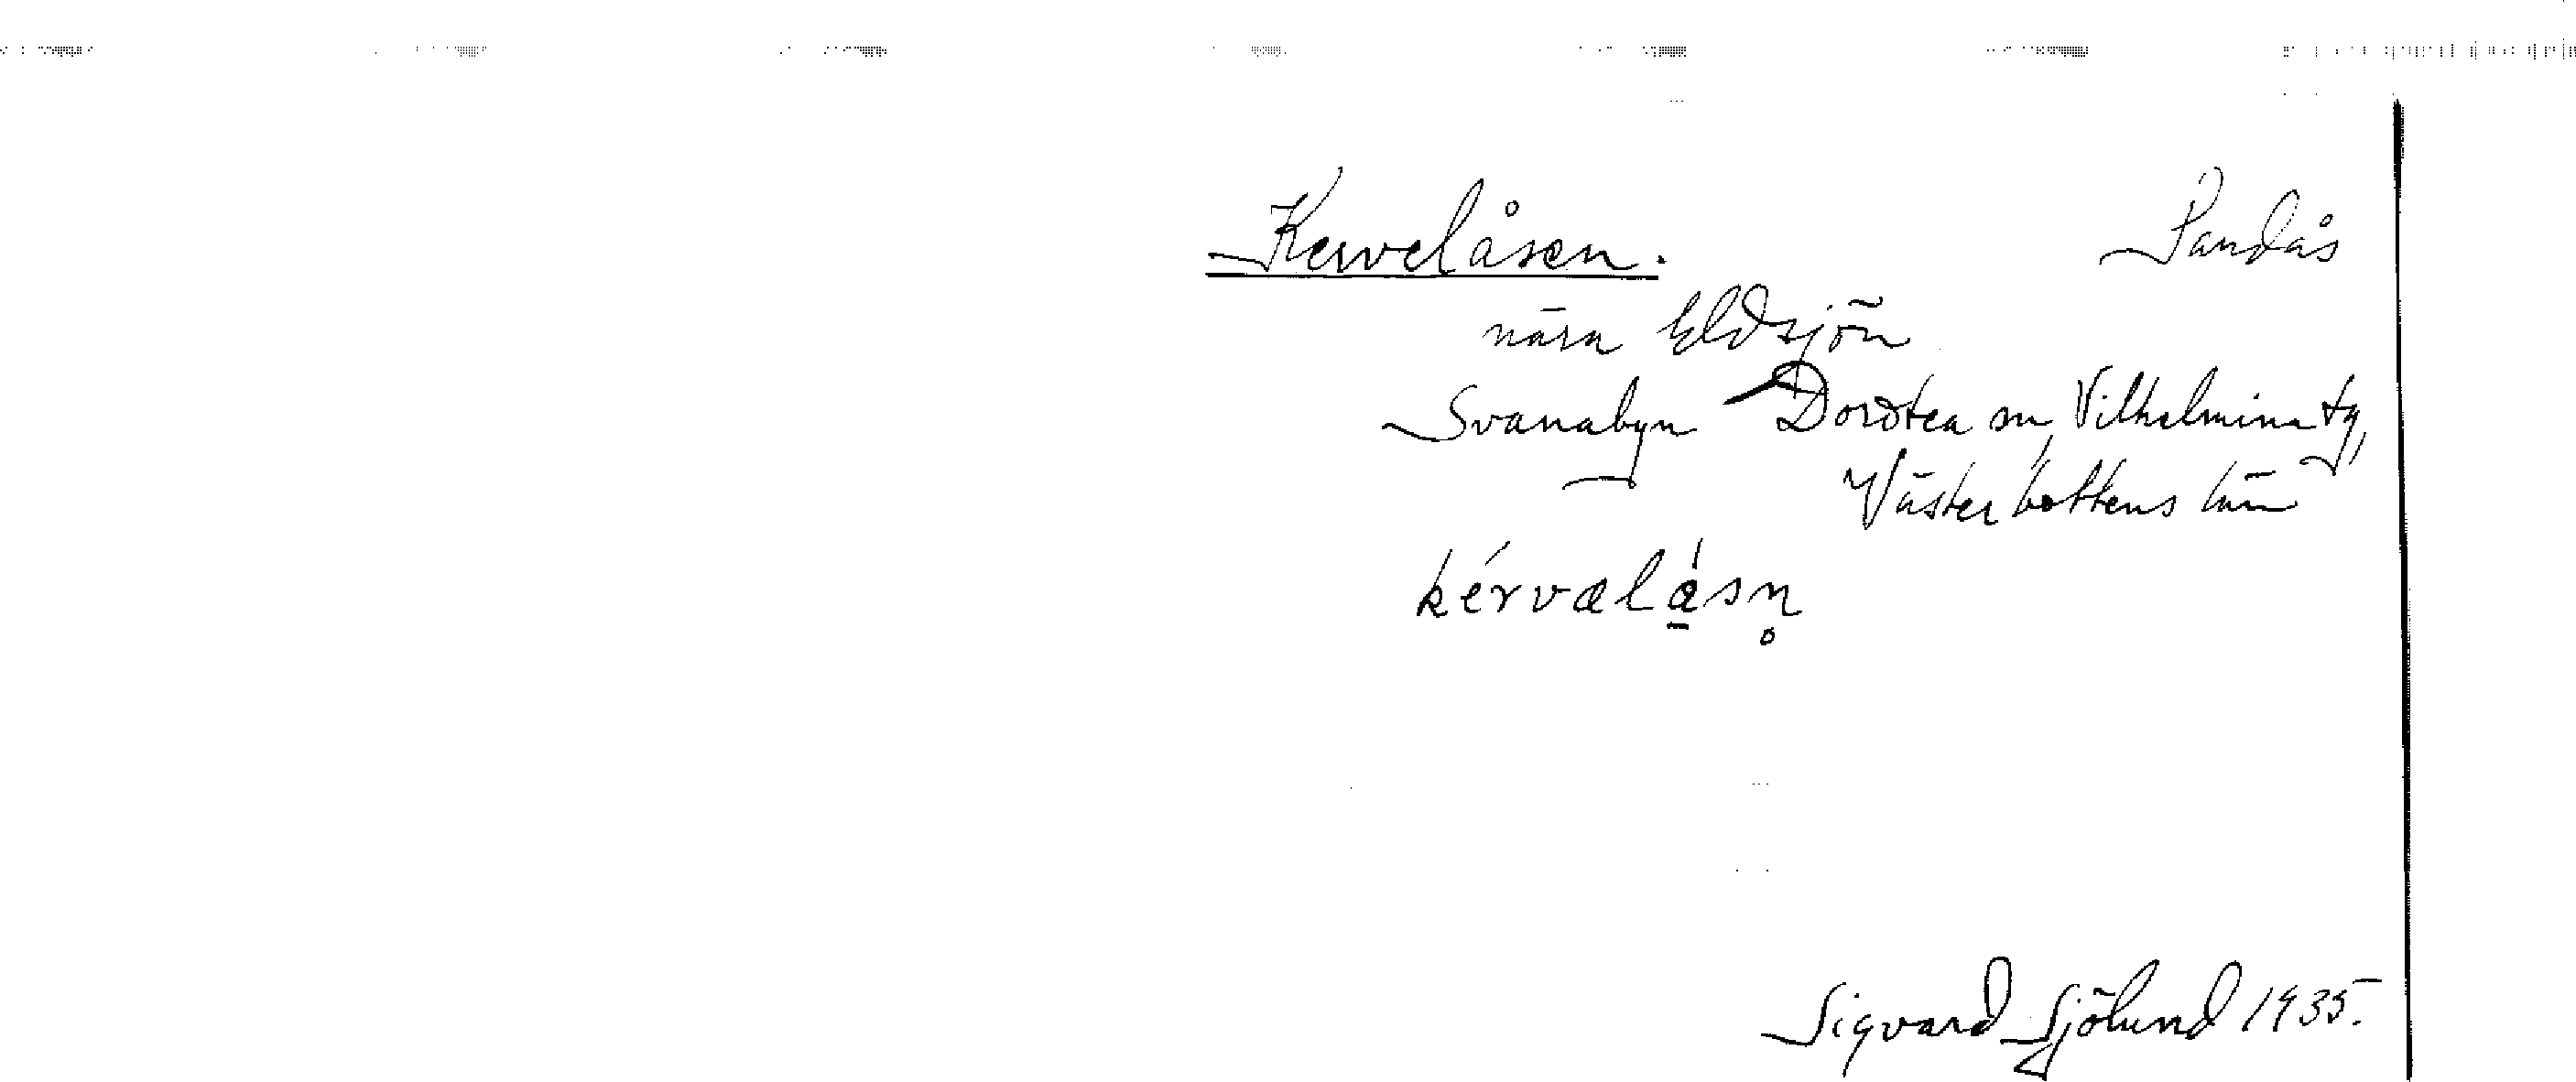 Kervelåsen. Sandås
nära Eldsjön
Svanabyn Dorotea sn, Vilhelmina tg,
Västerbottens län
kérvælǻsn̥
Sigvard Sjölund 1935.